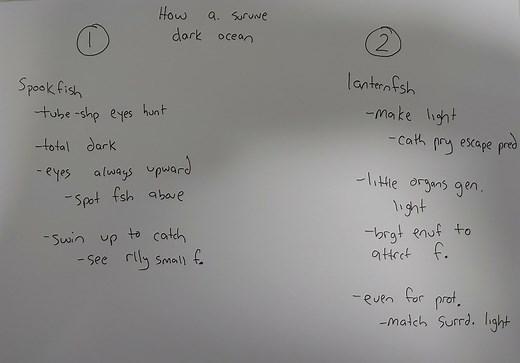 How a. survive
dark ocean
1
Spookfish
-tube-shp eyes hunt
-total dark
-eyes always upward
-spot fsh above
-swim up to catch
-see rlly small f.
2
lanternfsh
-make light
-cath pry escape pred
-little organs gen.
light
-brgt enuf to
attrct f.
-even for prot.
-match surrd. light